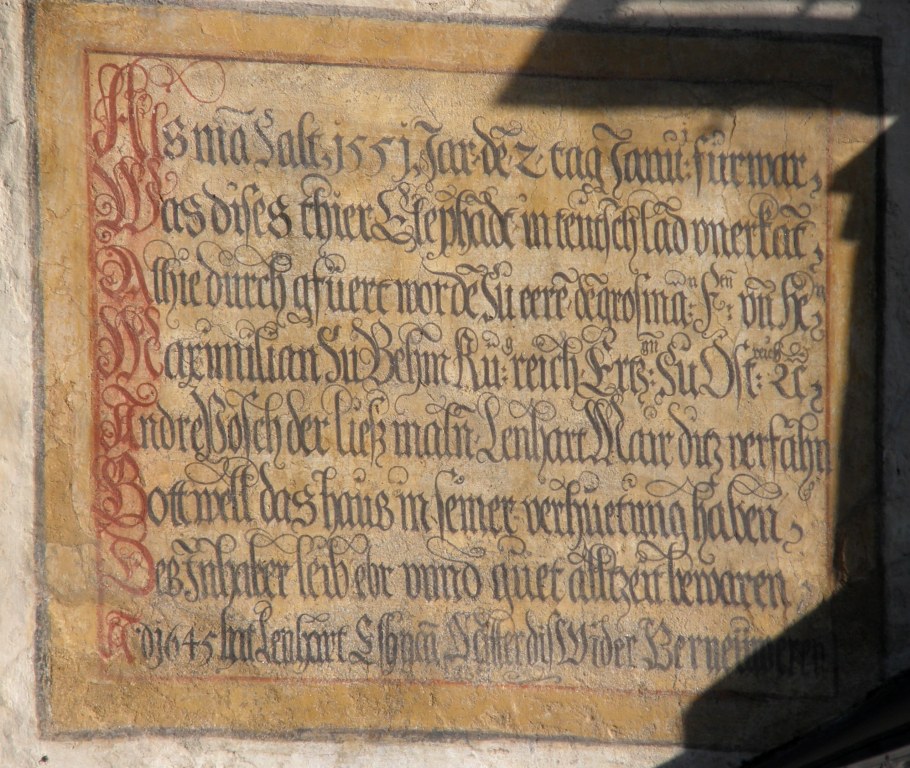 Als mā Zalt .1551. Jar. dē 2. tag Janū: fürwar,
Was dises thier Elephādt in teütschlād vnerkāt,
Alhie durch gfüert wordē Zu eerē degrosmā: Fⁿ: vñ Hē
Maximilian Zu Behm Kü: reich, Ertz: Zu Öst:
Andre Posch der liesz maln Lenhart Mair ditz verfahn
Gott well das haus in seiner verhüetung haben,
Des Inhaber leib ehr vnnd guet alltzeit bewaren
Adj 1645 hat Lenhart dis Wider Verneüweren